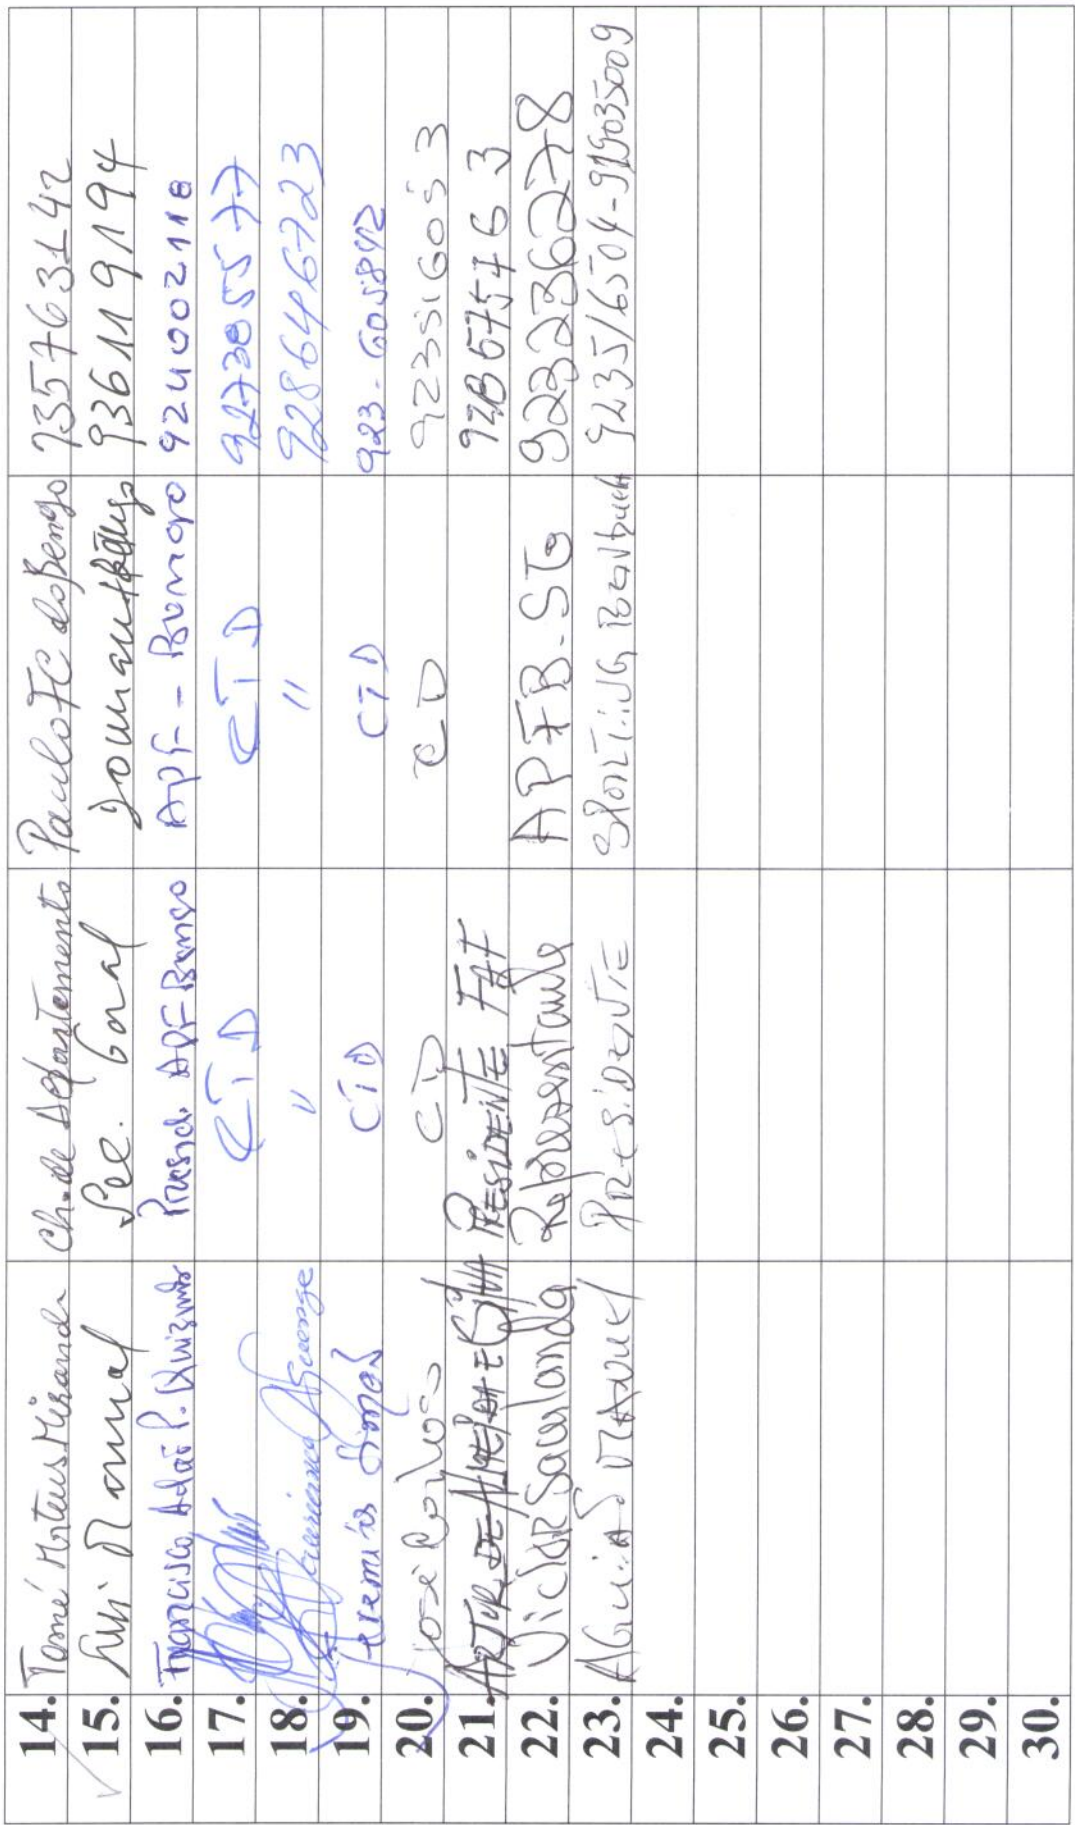 14. Tomé Mateus Miranda Ch. de Departamento Paulo FC do Bengo 935763142
15. Manuel Sec. Geral Domant 936119194
16. Francisco Adão P. Presid. APF Bengo APF - Bengo 924002118
17. CTD CTD 927385577
18. " " 928646723
19. CTD CTD 923-605842
20. José Carlos CD CD 923516053
21. ARTUR DE ALMEIDA E SILVA PRESIDENTE FAF 928675463
22. Victor Saculanda Representante APFB-STG 923236278
23. MANUEL PRESIDENTE SPORTING 923516504-919035009
24.
25.
26.
27.
28.
29.
30.